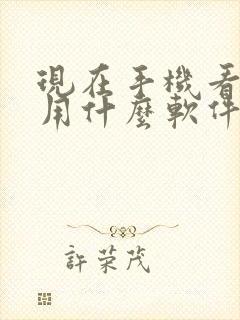 現在手機看
用什麼軟件
許荣茂